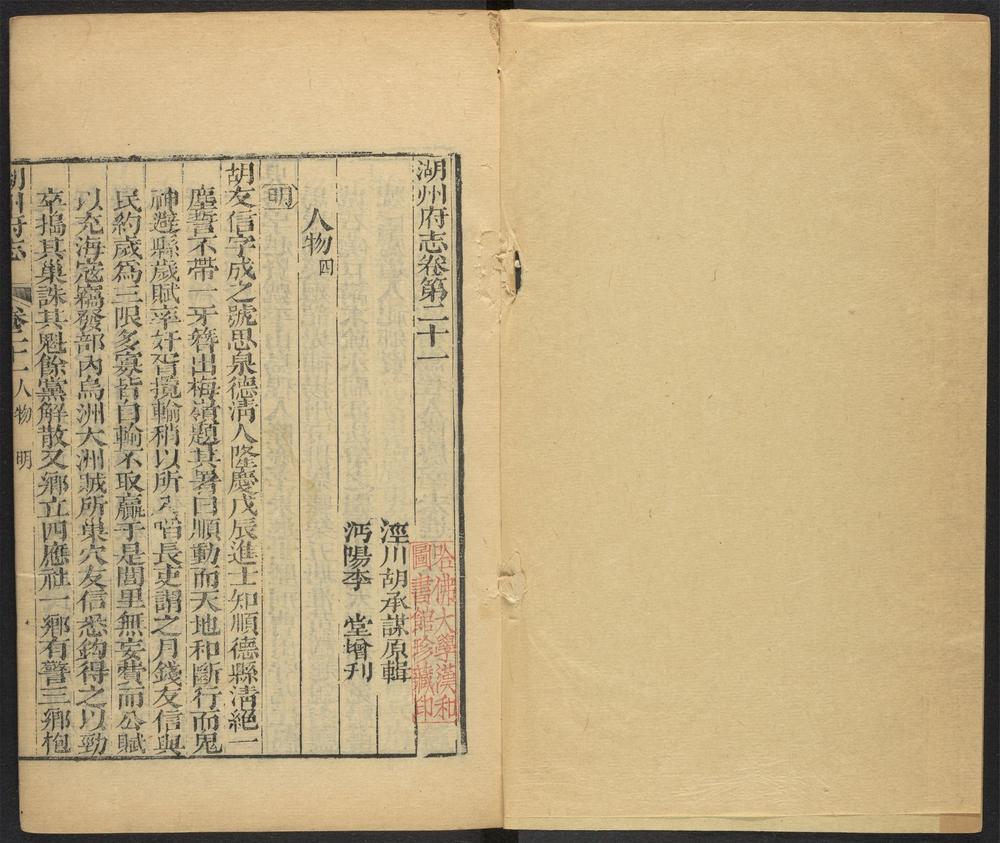 湖州府志卷第二十一
涇川胡承謀原輯
沔陽李　堂增刊
哈佛大學漢和
圖書館珍藏印
人物四
明
胡友信字成之號思泉德淸人隆慶戊辰進士知順德縣淸絕一
塵誓不帶一牙簪出梅嶺題其署曰順動而天地和斷行而鬼
神避縣歲賦率奸胥攬輸稍以所入啗長吏謂之月錢友信與
民約歲爲三限多寡皆自輸不取羸于是閭里無妄費而公賦
以充海寇竊發部內烏洲大洲賊所巢穴友信悉鈎得之以勁
卒搗其巢誅其魁餘黨解散又鄉立四應社一鄉有警三鄉枹
湖州府志 卷二十一人物 明